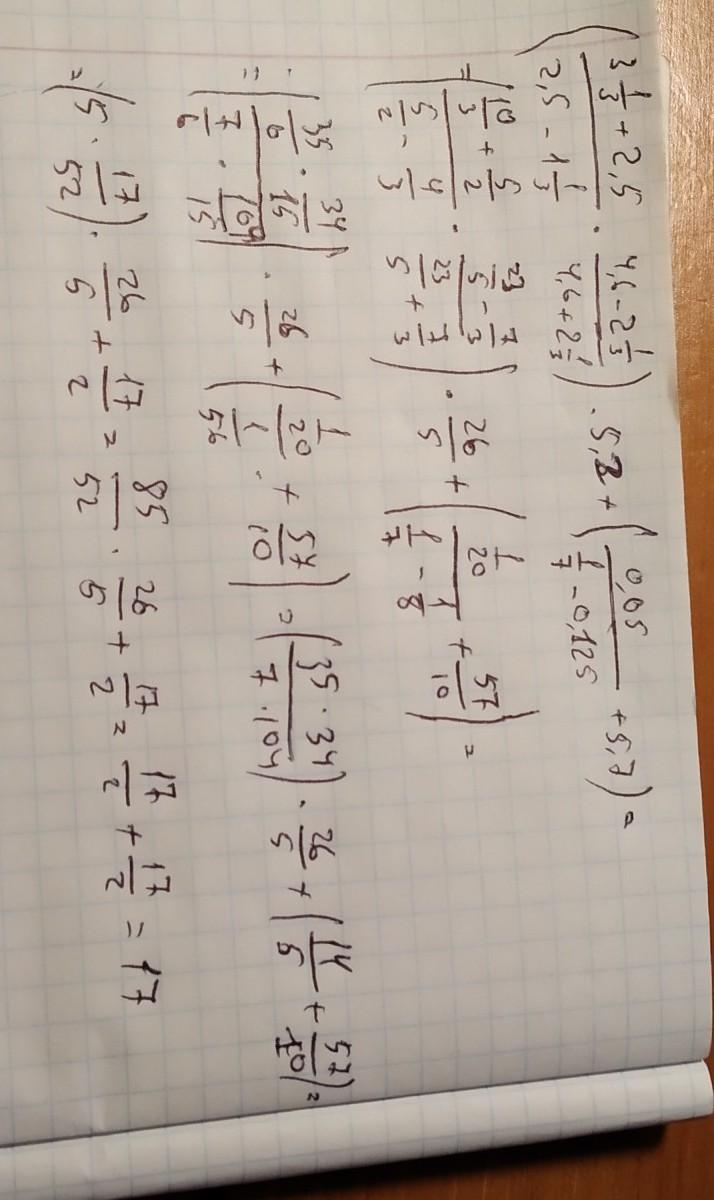 (3 1/3 + 2,5 / 2,5 - 1 1/3 · 4,6 - 2 1/3 / 4,6 + 2 1/3) · 5,2 + (0,05 / 1/7 - 0,125 + 5,7) =
= (10/3 + 5/2 / 5/2 - 4/3 · 23/5 - 7/3 / 23/5 + 7/3) · 26/5 + (1/20 / 1/7 - 1/8 + 57/10) =
= (35/6 · 34/15 / 7/6 · 104/15) · 26/5 + (1/20 / 1/56 + 57/10) = (35 · 34 / 7 · 104) · 26/5 + (14/5 + 57/10) =
= (5 · 17/52) · 26/5 + 17/2 = 85/52 · 26/5 + 17/2 = 17/2 + 17/2 = 17